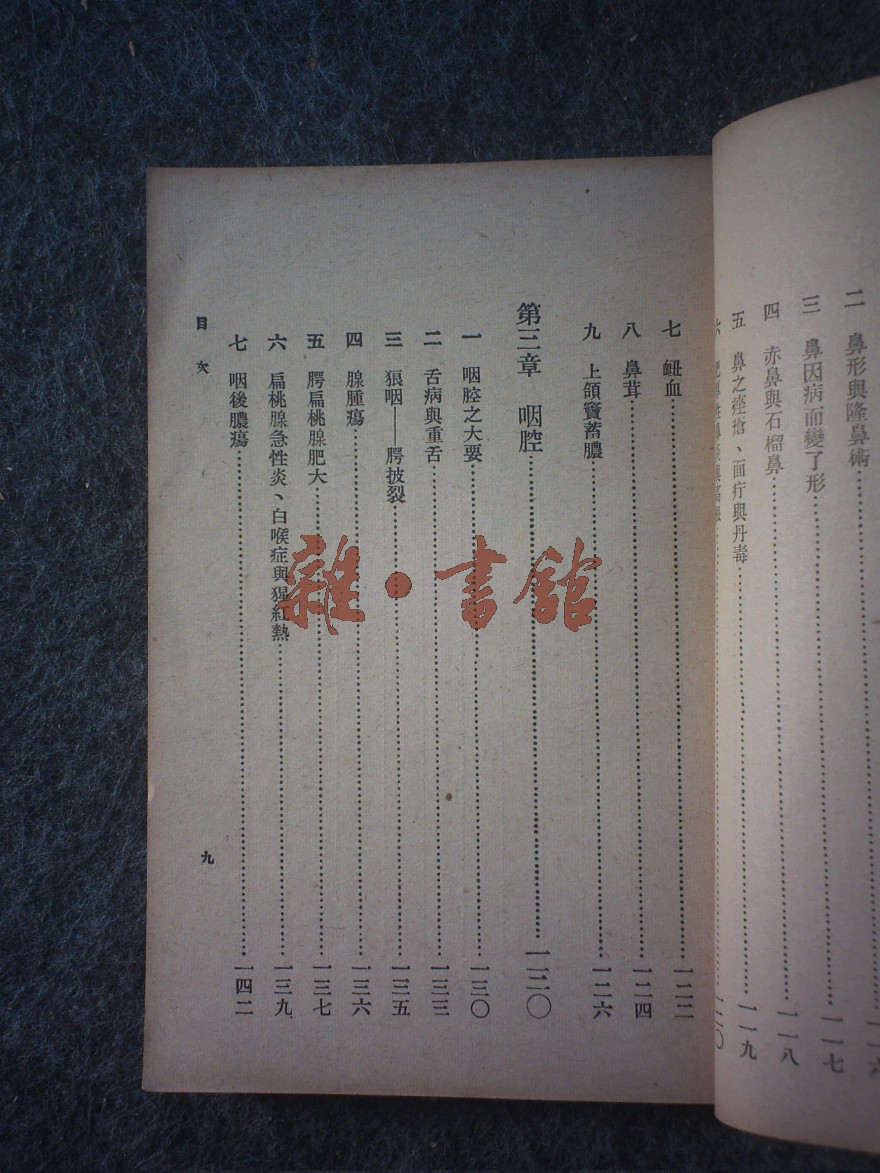 二 鼻形與隆鼻術 一一六
三 鼻因病而變了形 一一七
四 赤鼻與石榴鼻 一一八
五 鼻之痤瘡、面疔與丹毒 一一九
六 一二〇
七 衄血 一二二
八 鼻茸 一二四
九 上頜竇蓄膿 一二六
第三章 咽腔 一三〇
一 咽腔之大要 一三〇
二 舌病與重舌 一三三
三 狼咽——腭披裂 一三五
四 腺腫瘍 一三六
五 腭扁桃腺肥大 一三七
六 扁桃腺急性炎、白喉症與猩紅熱 一三九
七 咽後膿瘍 一四二
目次
九
雜·書館